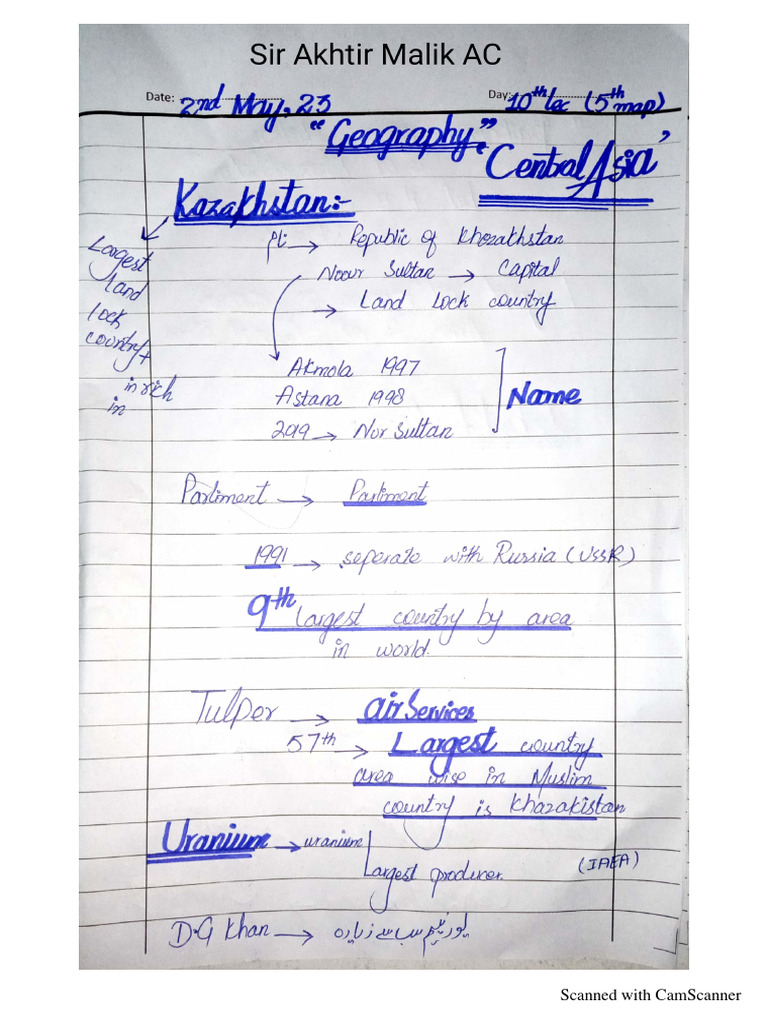 Sir Akhtir Malik AC
Date: 2nd May, 23
Day: 10th lec (5th map)
"Geography"
Central Asia'
Kazakhstan:-
Largest
land
lock
country+
in rich
in
نام → Republic of Khozakhstan
Noour Sultan → Capital
→ Land lock country
Akmola 1997
Astana 1998
2019 → Nor Sultan
Name
Parliment → Parliment
1991 → seperate with Russia (USSR)
9th largest country by area
in world.
Tulper → air Services
57th → Largest country
area wise in Muslim
country is Khazakistan
Uranium → uranium
Largest producer.
(IAEA)
D.G Khan → یورنیم سب سے زیادہ
Scanned with CamScanner